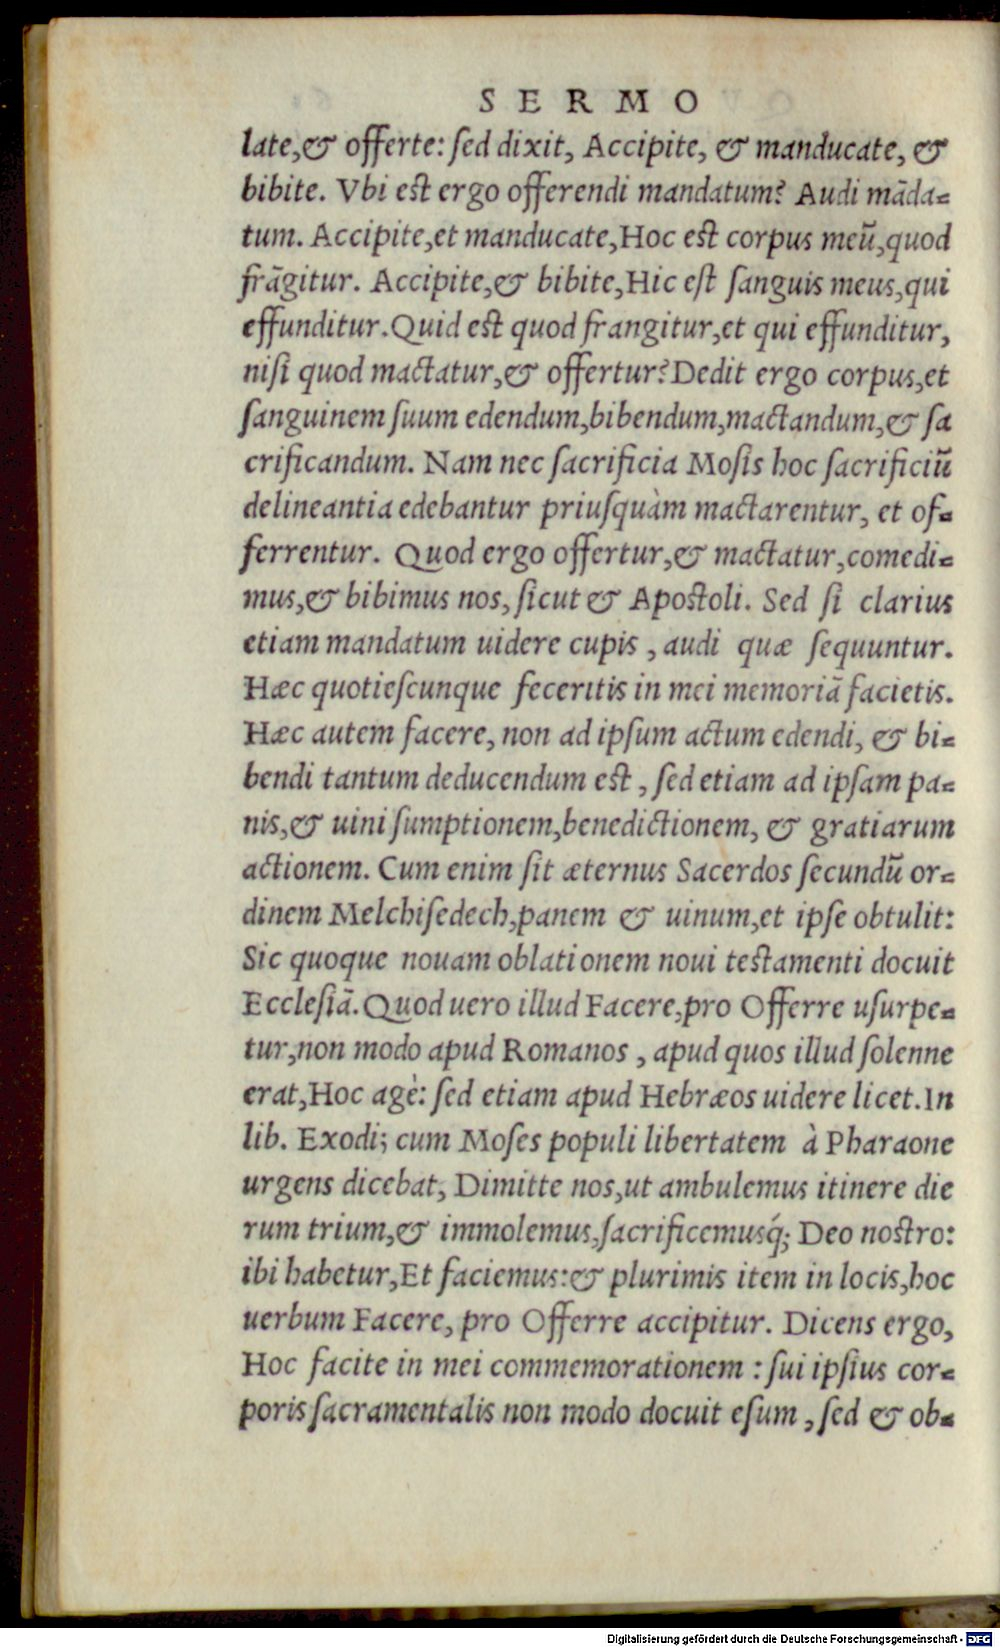 SERMO
late,& offerte: sed dixit, Accipite, & manducate, &
bibite. Vbi est ergo offerendi mandatum? Audi māda-
tum. Accipite,et manducate,Hoc est corpus meū,quod
frāgitur. Accipite,& bibite,Hic est sanguis meus,qui
effunditur.Quid est quod frangitur,et qui effunditur,
nisi quod mactatur,& offertur?Dedit ergo corpus,et
sanguinem suum edendum,bibendum,mactandum,& sa
crificandum. Nam nec sacrificia Mosis hoc sacrificiū
delineantia edebantur priusquàm mactarentur, et of-
ferrentur. Quod ergo offertur,& mactatur,comedi-
mus,& bibimus nos, sicut & Apostoli. Sed si clarius
etiam mandatum uidere cupis , audi quæ sequuntur.
Hæc quotiescunque feceritis in mei memoriā facietis.
Hæc autem facere, non ad ipsum actum edendi, & bi-
bendi tantum deducendum est , sed etiam ad ipsam pa-
nis,& uini sumptionem,benedictionem, & gratiarum
actionem. Cum enim sit æternus Sacerdos secundū or-
dinem Melchisedech,panem & uinum,et ipse obtulit:
Sic quoque nouam oblationem noui testamenti docuit
Ecclesiā.Quod uero illud Facere,pro Offerre usurpe-
tur,non modo apud Romanos , apud quos illud solenne
erat,Hoc agè: sed etiam apud Hebræos uidere licet.In
lib. Exodi; cum Moses populi libertatem à Pharaone
urgens dicebat, Dimitte nos,ut ambulemus itinere die
rum trium,& immolemus,sacrificemusq́; Deo nostro:
ibi habetur,Et faciemus:& plurimis item in locis,hoc
uerbum Facere, pro Offerre accipitur. Dicens ergo,
Hoc facite in mei commemorationem : sui ipsius cor-
poris sacramentalis non modo docuit esum , sed & ob-
Digitalisierung gefördert durch die Deutsche Forschungsgemeinschaft - DFG